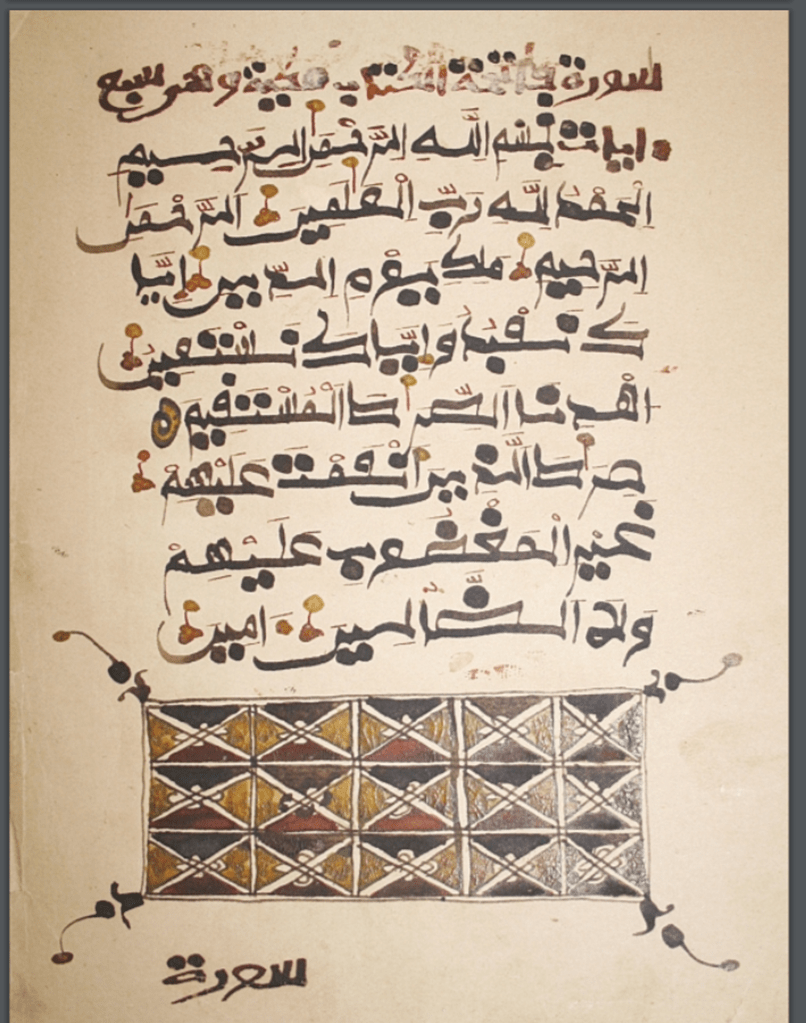 سورة فاتحة الكتب مكية وهي سبع
ءايات بِسْمِ اللَّهِ الرَّحْمَٰنِ الرَّحِيمِ
الْحَمْدُ لِلَّهِ رَبِّ الْعَٰلَمِينَ الرَّحْمَٰنِ
الرَّحِيمِ مَلِكِ يَوْمِ الدِّينِ إِيَّا
كَ نَعْبُدُ وَإِيَّاكَ نَسْتَعِينُ
اهْدِنَا الصِّرَٰطَ الْمُسْتَقِيمَ
صِرَٰطَ الَّذِينَ أَنْعَمْتَ عَلَيْهِمْ
غَيْرِ الْمَغْضُوبِ عَلَيْهِمْ
وَلَا الضَّالِّينَ امين
سورة